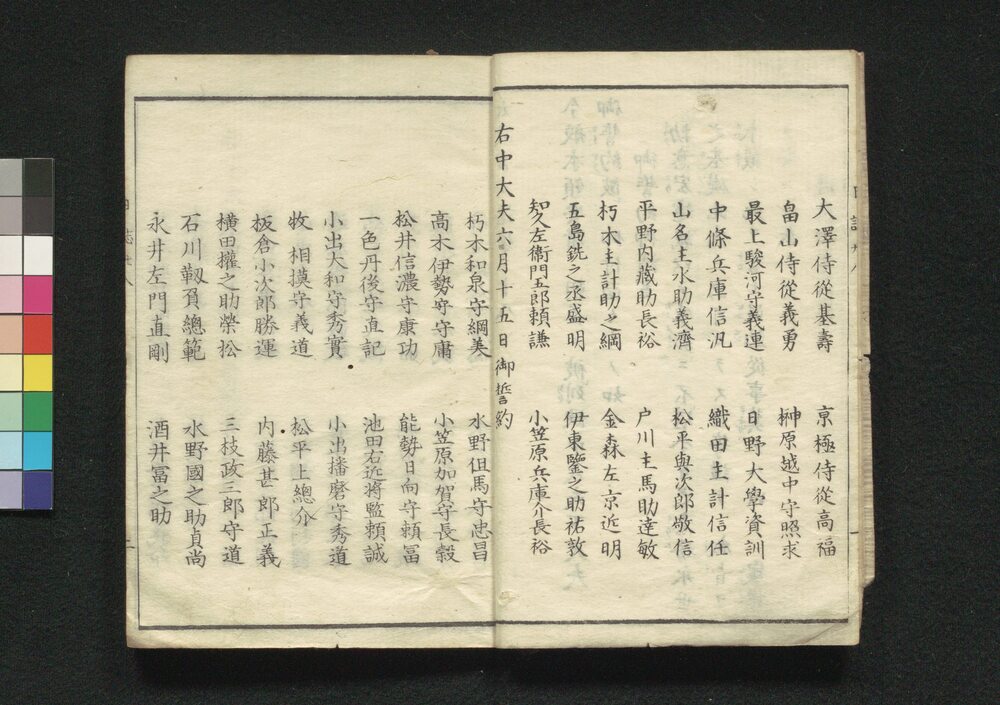 大澤侍從基壽　京極侍從高福
畠山侍從義勇　榊原越中守照求
最上駿河守義連　日野大學資訓
中條兵庫信汎　織田主計信任
山名主水助義濟　松平與次郎敬信
平野内藏助長裕　戸川主馬助達敏
朽木主計助之綱　金森左京近明
五島銑之丞盛明　伊東鑒之助祐敦
知久左衞門五郎頼謙　小笠原兵庫介長裕
右中大夫六月十五日御誓約
朽木和泉守綱美　水野但馬守忠昌
髙木伊勢守守庸　小笠原加賀守長毅
松井信濃守康功　能勢日向守頼冨
一色丹後守直記　池田右近將監頼誠
小出大和守秀實　小出播磨守秀道
牧　相摸守義道　松平上總介
板倉小次郎勝運　内藤甚郎正義
横田權之助榮松　三枝政三郎守道
石川靱負總範　水野國之助貞尚
永井左門直剛　酒井冨之助